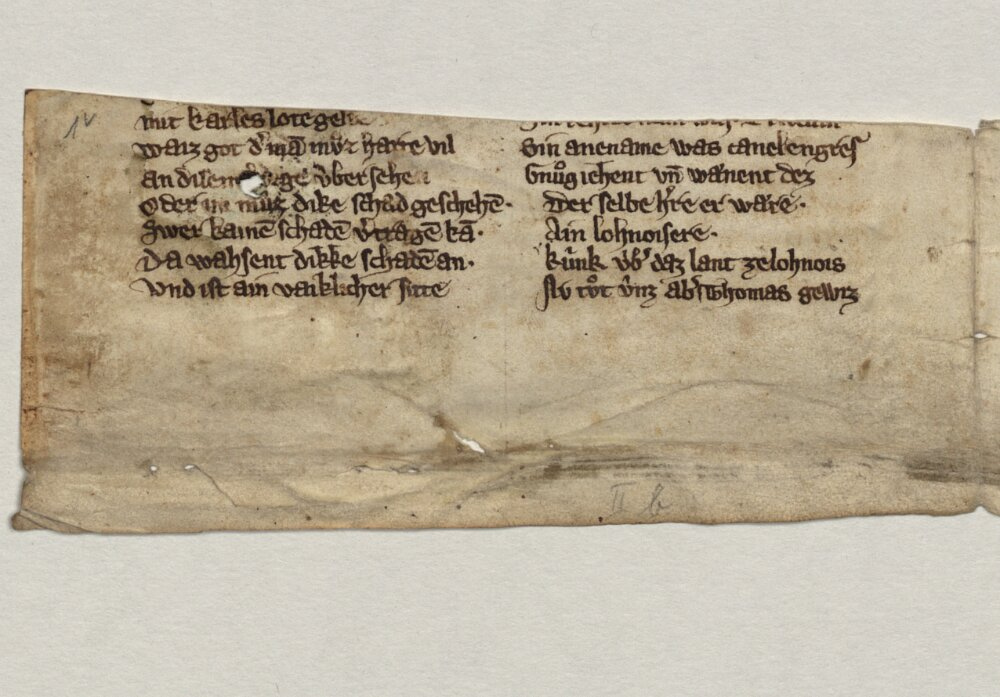 1v
mit karles lote gel
waiz got d͛ mā mv̊z harte vil
an disem v͛bersehen
oder im mv̊z dike schad geschehen·
Swer kainē schadē v͛tragē kā·
Da wahsent dikke schadē an·
Vnd ist ain vaiklicher sitte
Sin anename was canelengres
Gnv̊g iehent vn̄ wånent dez
Der selbe h͛re er wåre·
Ain lohnoisere·
kv̊nk vb͛ daz lant zelohnois
Nv tv̊t v̊nz ab͛ Thomas gewiz
II b